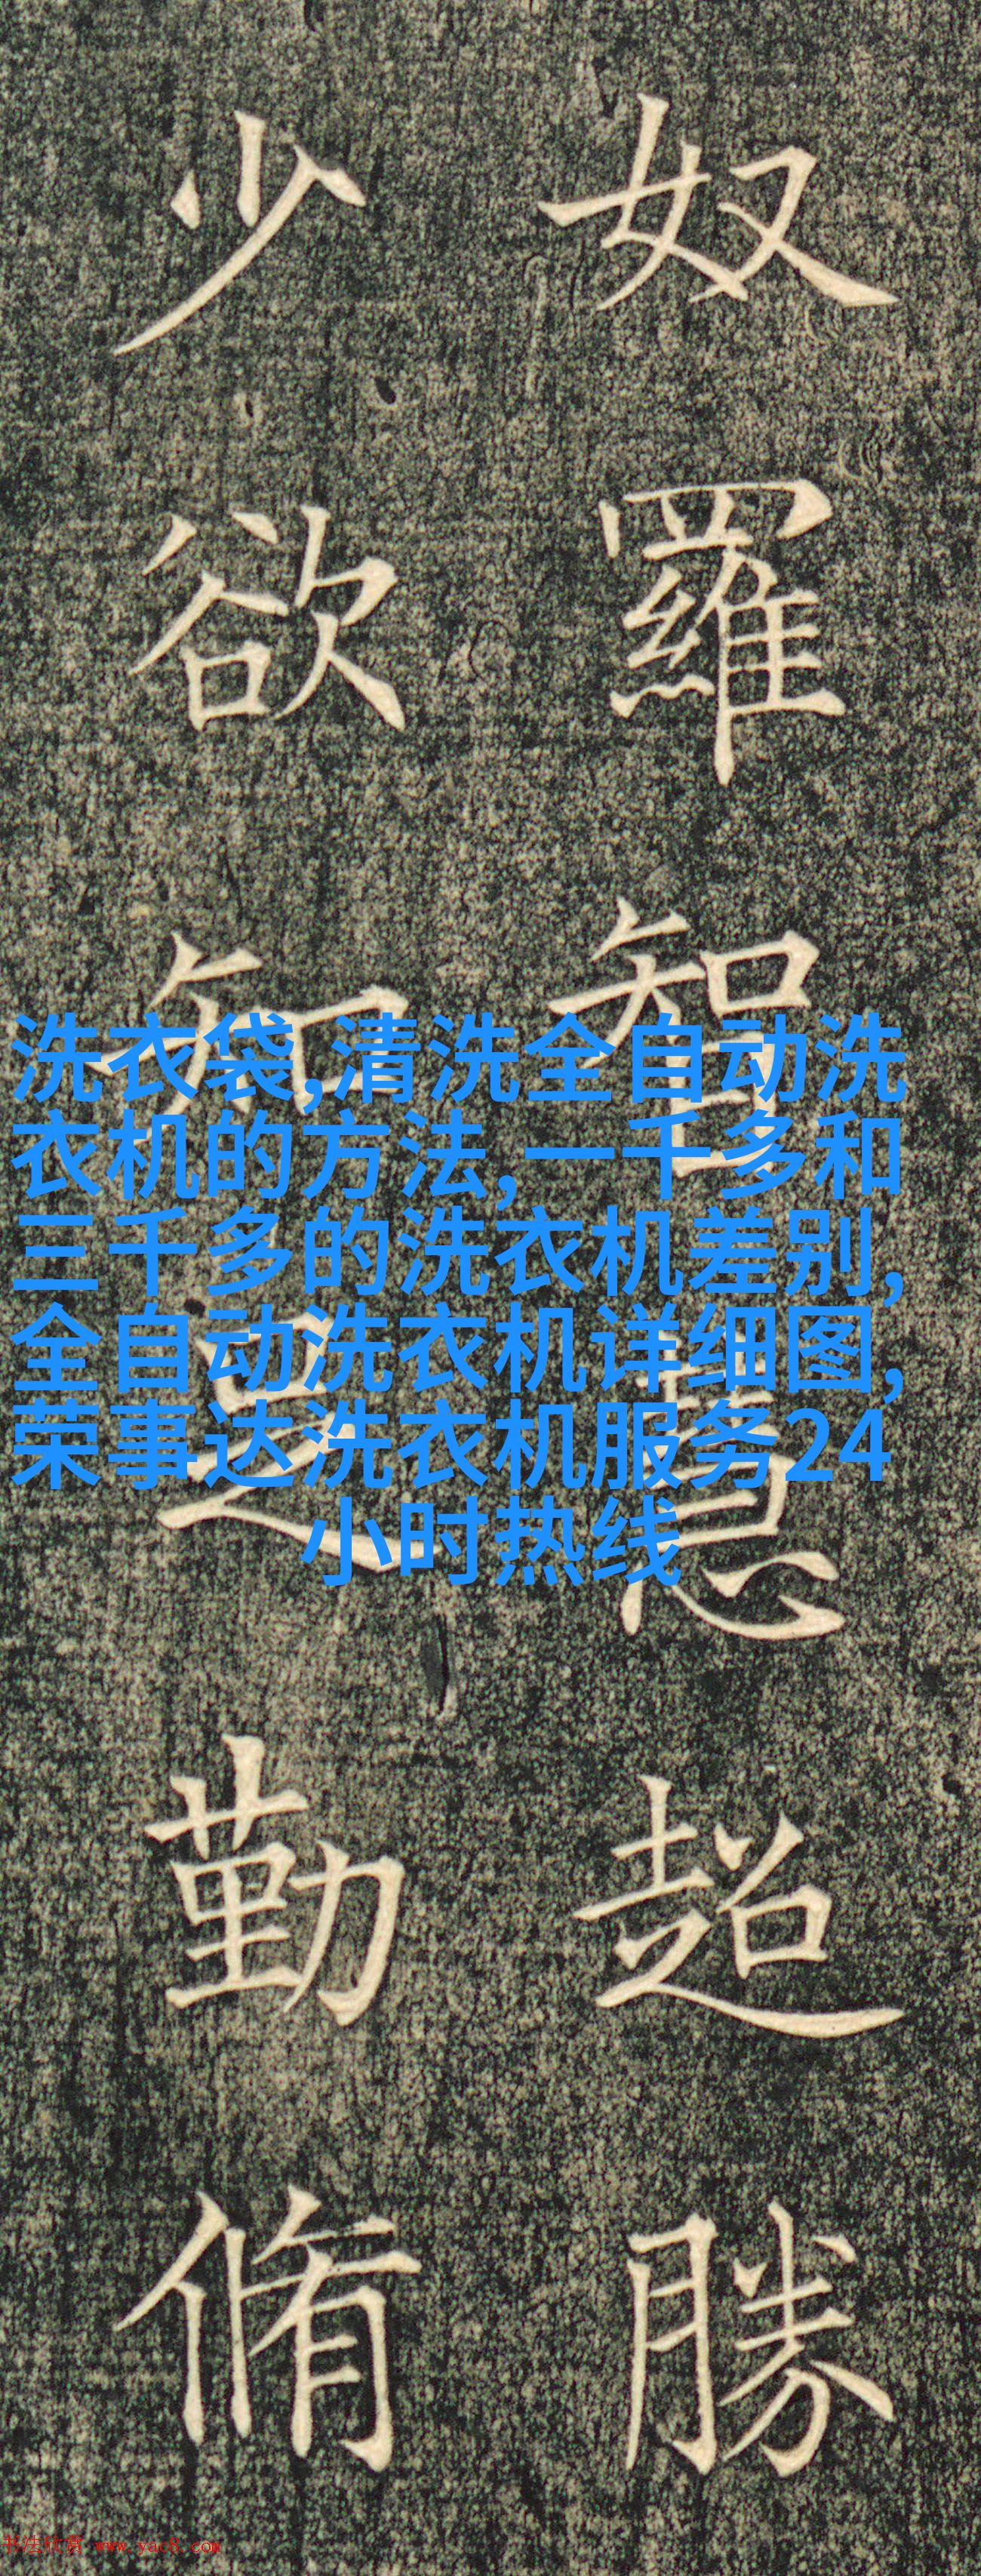 奴羅智慧超勝
少欲知足勤脩
洗衣袋,清洗全自动洗
衣机的方法,一千多和
三千多的洗衣机差别,
全自动洗衣机详细图,
荣事达洗衣机服务24
小时热线
书法欣赏 www.yac8.com